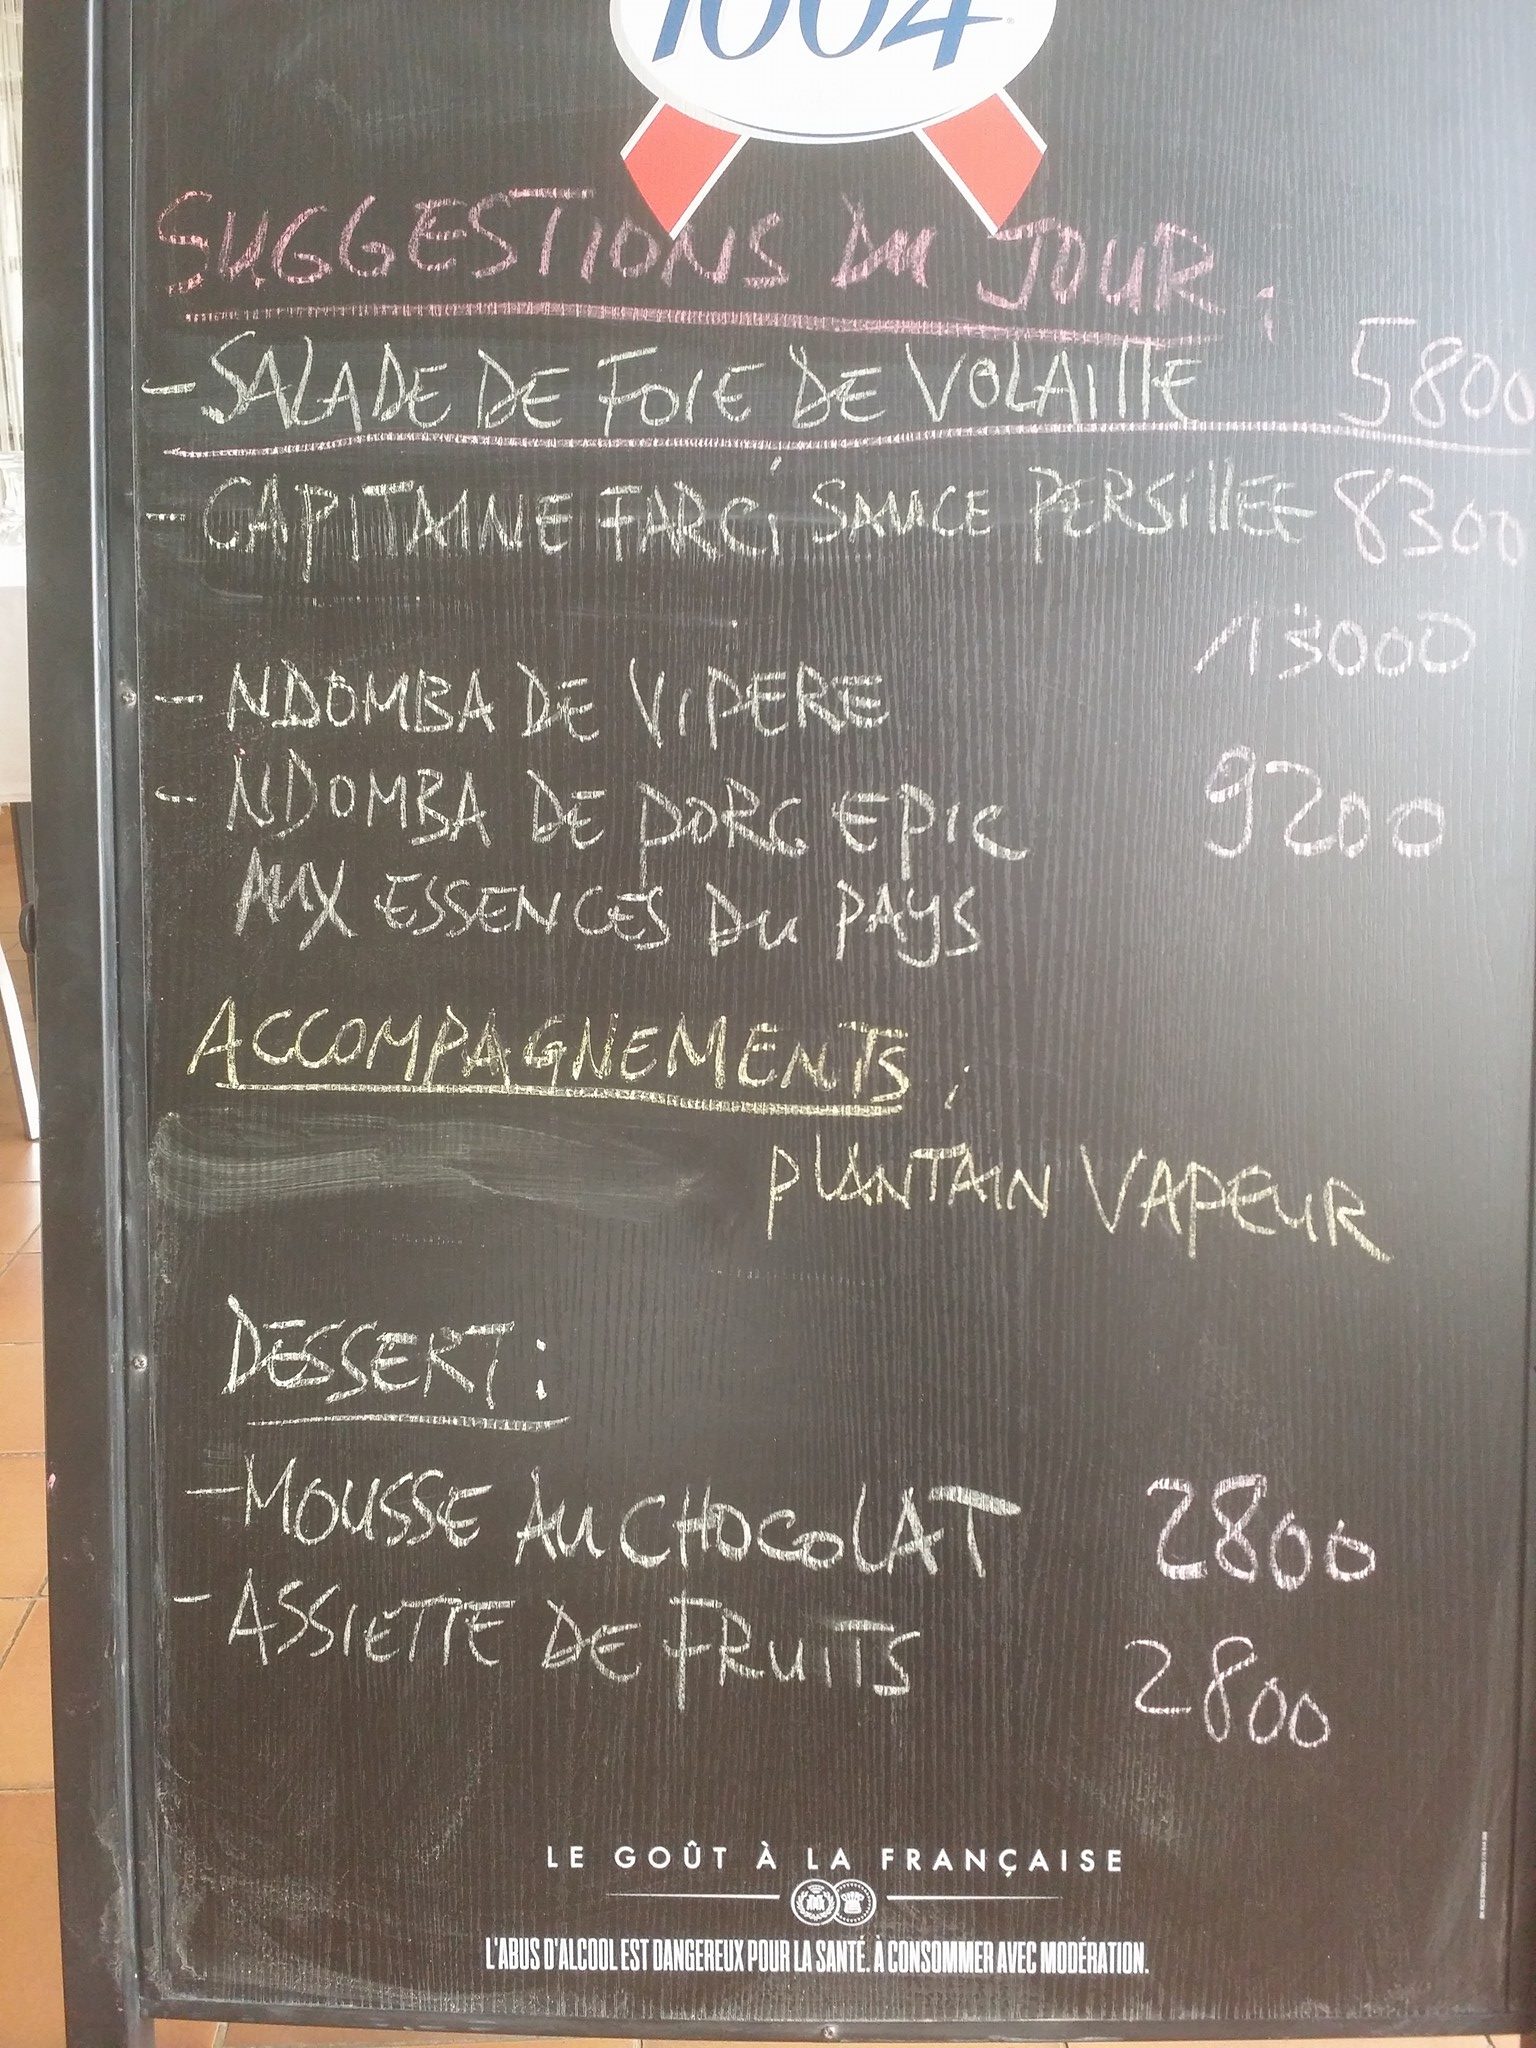 1664
SUGGESTIONS DU JOUR :
- SALADE DE FOIE DE VOLAILLE 5800
- CAPITAINE FARCI SAUCE PERSILLEE 8300
- NDOMBA DE VIPERE 13000
- NDOMBA DE PORC EPIC 9200
AUX ESSENCES DU PAYS
ACCOMPAGNEMENTS :
PLANTAIN VAPEUR
DESSERT :
- MOUSSE AU CHOCOLAT 2800
- ASSIETTE DE FRUITS 2800
LE GOÛT À LA FRANÇAISE
L'ABUS D'ALCOOL EST DANGEREUX POUR LA SANTÉ. À CONSOMMER AVEC MODÉRATION.